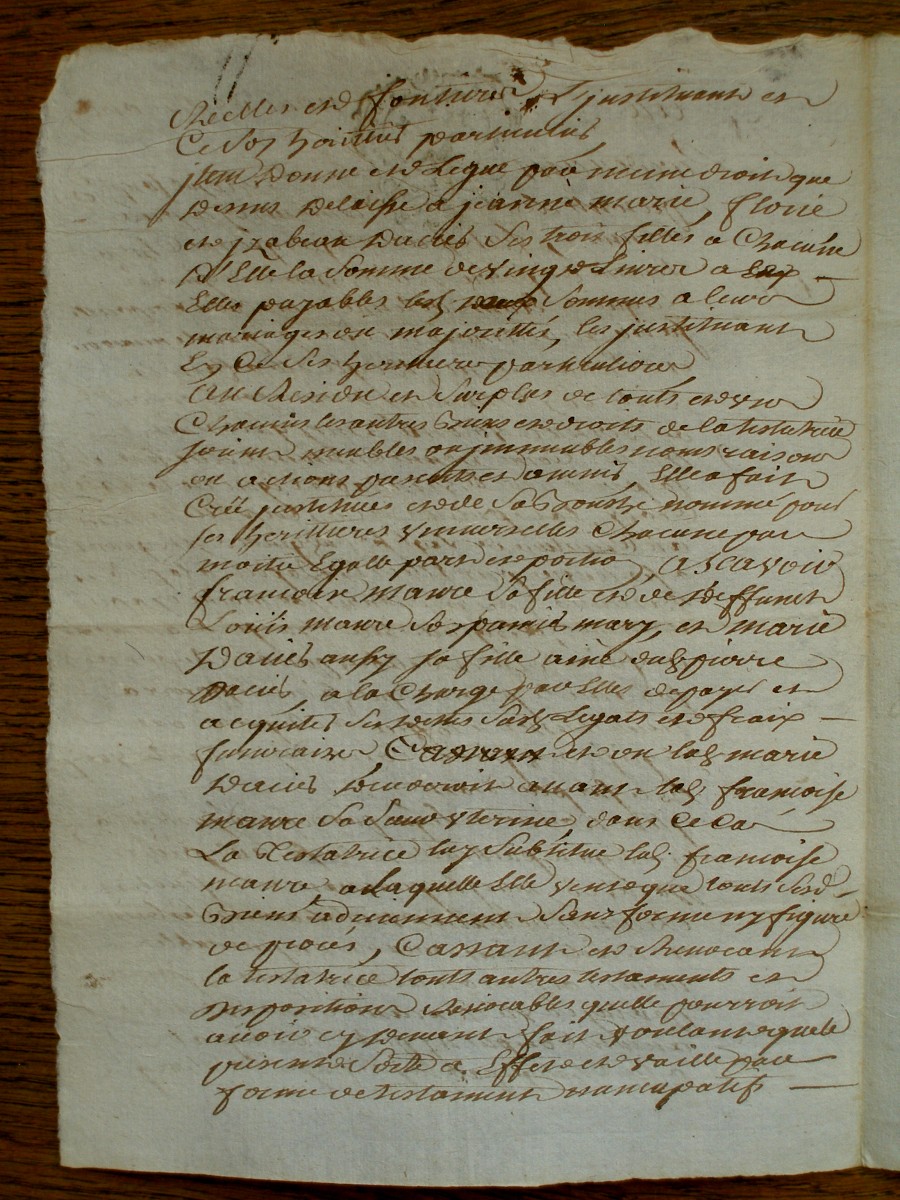 et l'jnstituant en
Ce son hoirttiers particuliers
jtem donne et Legue par meme droit que
dessus delaisse a jeanne marie, florie
et jzabeau daciés ses trois filles a Chacune
d'Elle la Somme de vingt Livres a
Elles payables Sommes a leurs
mariages ou majorittés, les jnstituant
En Ce ses heritieres particulieres
Au Residu et Surplus de touts et un
Chacuns les autres Biens et droits de la testatrice
soient meubles ou jmmeubles noms raisons
ou actions presents et advenir, Elle a fait
Créé jnstituées et de Sa Bouche nommé pour
ses heritieres vniverselles Chacune par
moitié Egalle part et portion, a Scavoir
francoise maure Sa fille et de deffunct
Louis maure Son premier mary, et marie
daciés aussy sa fille ainée dud pierre
daciés a la Charge par Elles de payer et
acquiter Ses dettes Sesd Legats et fraix
funeraires et ou lad marie
daciés decederoit avant lad francoise
maure Sa Sœur vterine dans Ce Cas
La Testatrice luy Substitue lad francoise
maure a Laquelle Elle veut que touts Sesd
Biens adviennent Sans forme ny figure
de procés, Cassant et Revocant
la testatrice touts autres testaments et
dispositions Revocables quelle pourroit
avoir cy devant fait voulant que le
present Sorte a Effet et vaille par
forme de testament nuncupatif